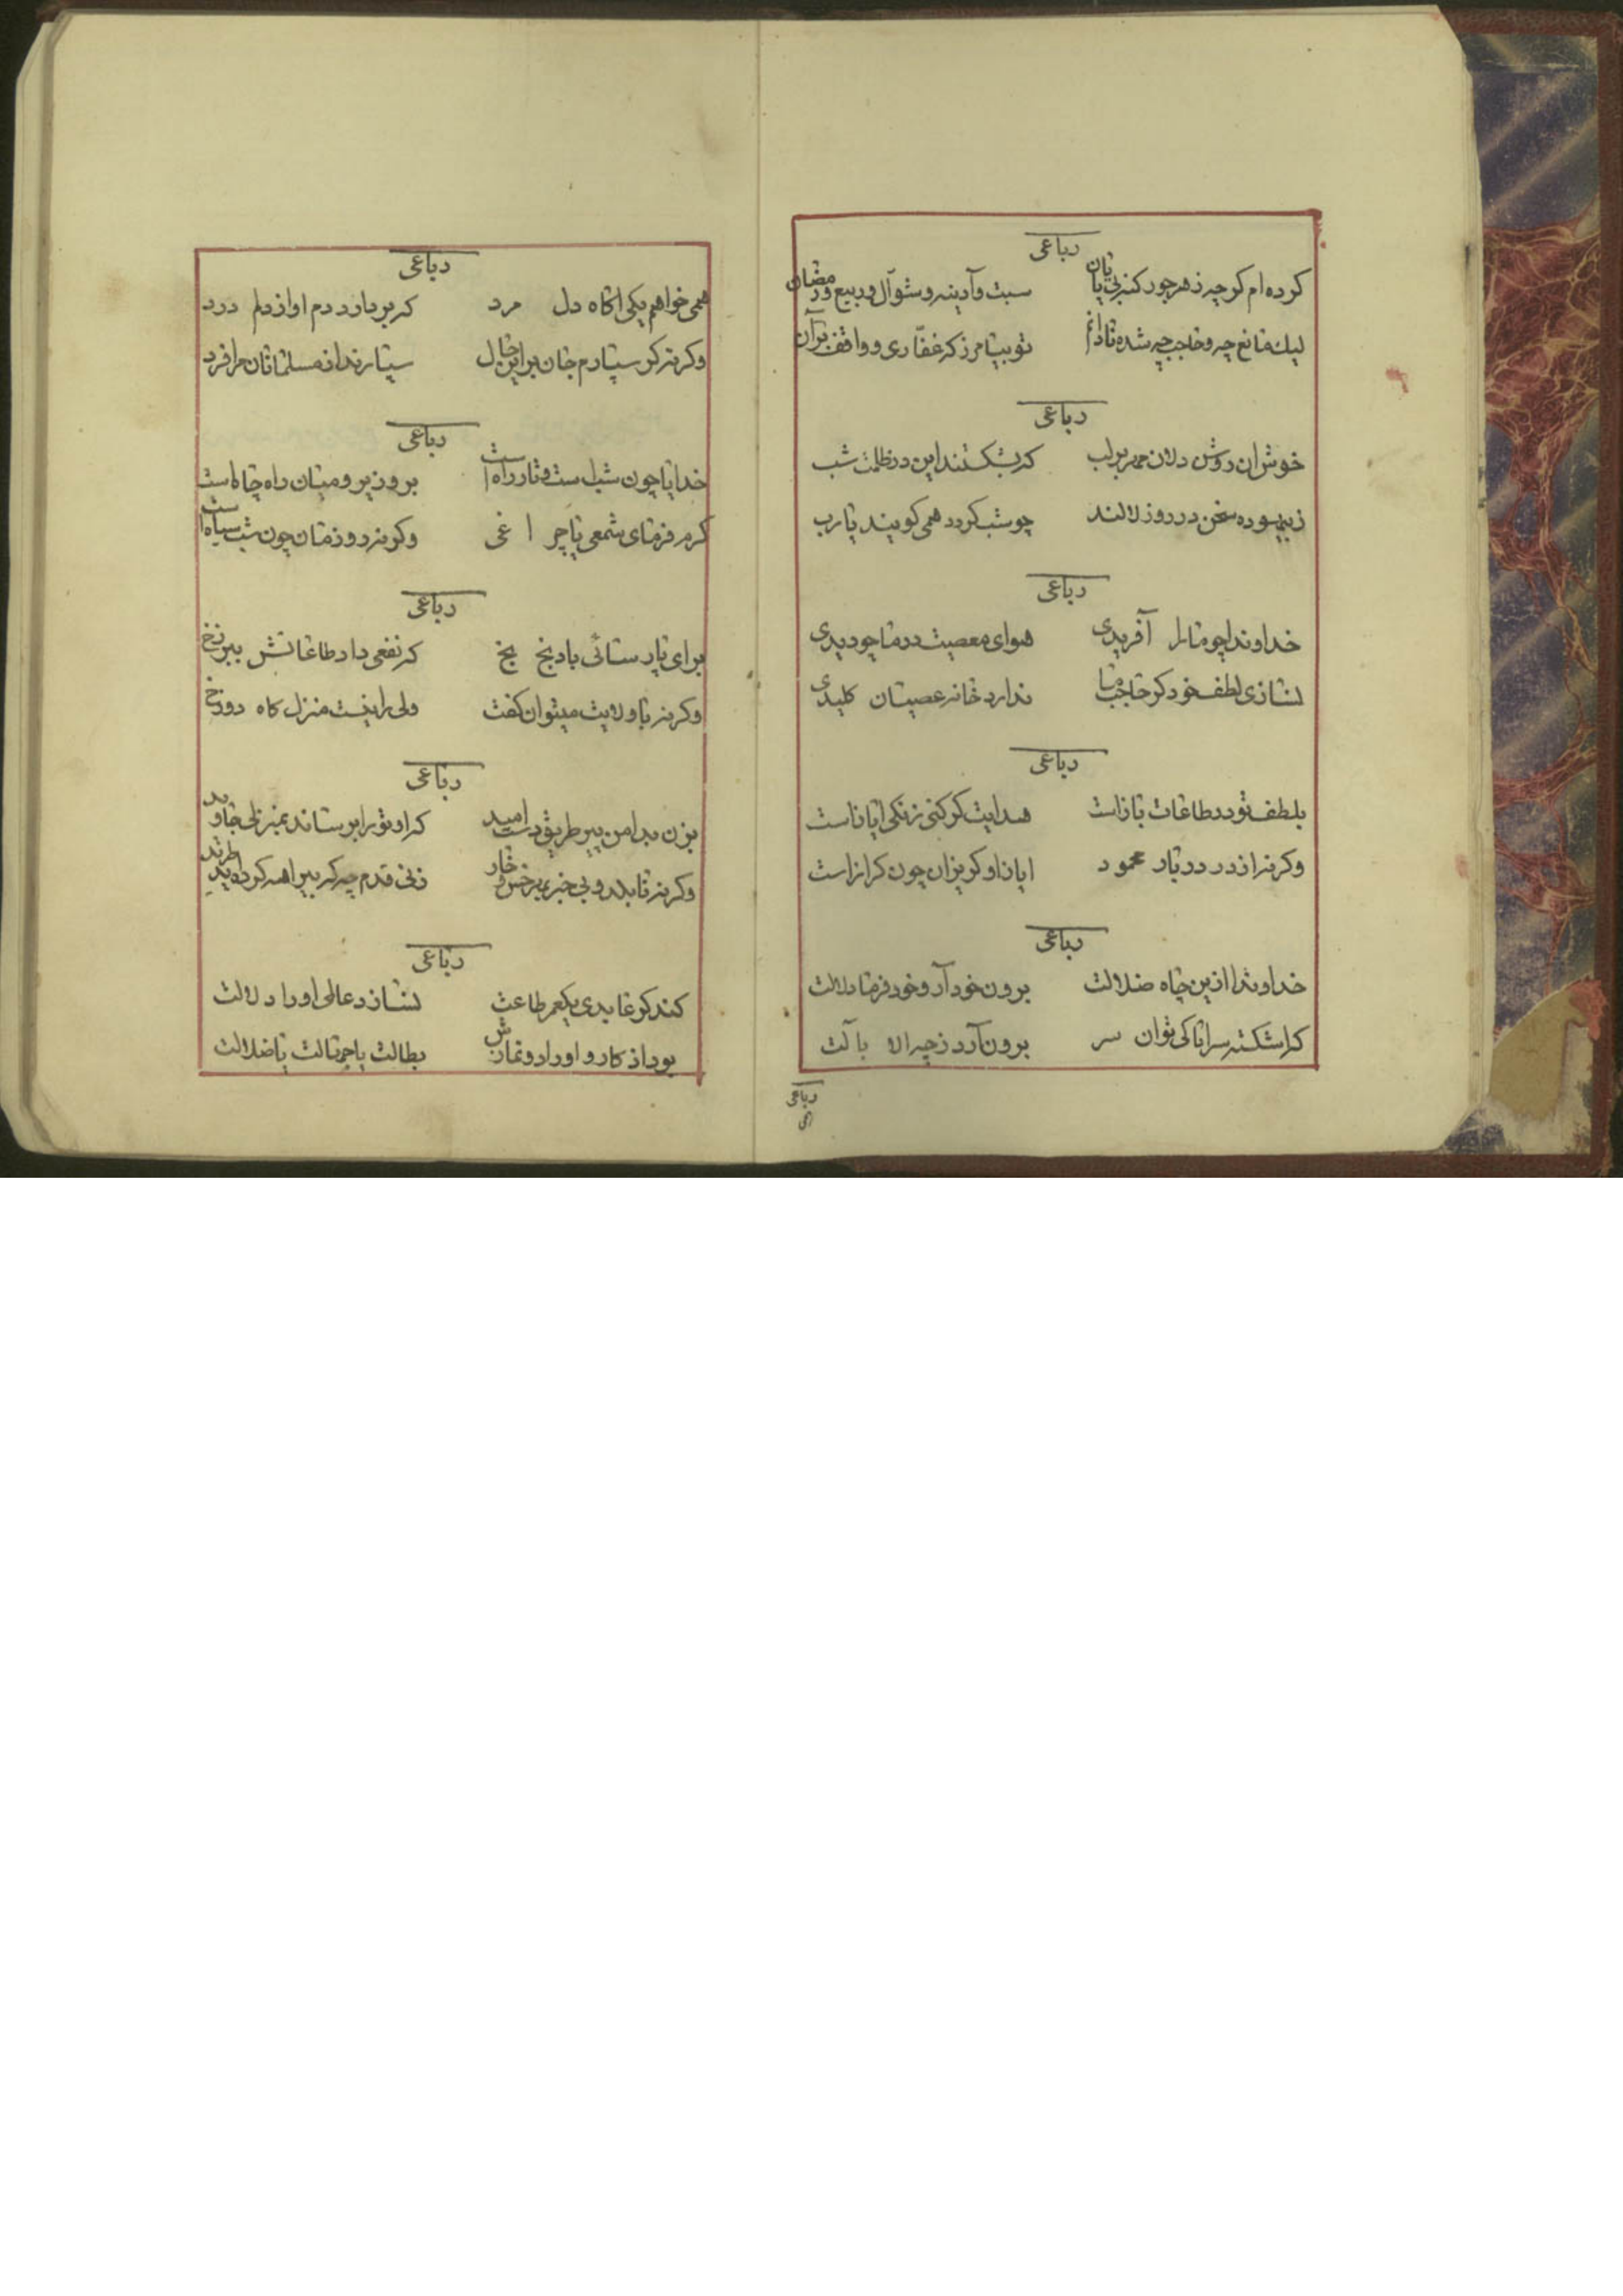 رباعی
کرده‌ام کرچه زهر جور کنه بی پایان سبت و آدینه و شوآل و ربیع و رمضان
لیك مانع چه و حاجب چه شده نادانم تو بیامرز که غفّاری و واقف بر آن
رباعی
خوش ان روشن دلان مهر بر لب که بشکستند این در ظلمت شب
زبیهوده سخن در روز لالند چو شب کردد همی کویند یا رب
رباعی
خداوندا چو ما را آفریدی هوای معصیت در ما چو دیدی
نسازی لطف خود کر حاجب ما ندارد خانه عصیان کلیدی
رباعی
بلطف تو در طاعات باز است هدایت کر کنی زنکی ایاز است
وکرنه از در دربار محمود ایاز او کریزان چون کراز است
رباعی
خداوندا ازین چاه ضلالت برون خود آر و خود فرما دلالت
کراشکسته سرا پا کی توان سر برون آرد ز چه الا با آلت
رباعی
همی
رباعی
همی خواهم یکی اکاه دل مرد که بردارد دم او از دلم درد
وکرنه کر سپارم جان برین حال سپارندانه مسلمانان مرا فرد
رباعی
خدایا چون شب است و تار راه است بروز پر و میان راه چاه است
کرم فرمای شمعی یا چراغی وکرنه روز مان چون شب سیاه است
رباعی
برای پارسائی باد بخ بخ که نفعی داد طاعاتش ببرزخ
وکرنه با ولایت میتوان کفت ولی را نیست منزل کاه دوزخ
رباعی
بزن بدامن پیر طریق دست امید که او تو را برساند بمنزلی جاوید
وکرنه نابلد و بی خبر بهر خس و خار زنی قدم چه که بیراهه کرده اید
رباعی
کند کر عابدی یکعمر طاعت نسازد عالمی او را دلالت
بود اذکار و اوراد و نمازش بطالت یا جهالت یا ضلالت